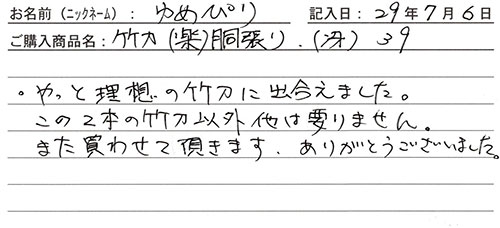 お名前(ニックネーム): ゆめぴり 記入日: 29年7月6日
ご購入商品名: 竹刀(楽)胴張り.(冴) 39
・やっと理想の竹刀に出合えました。
この2本の竹刀以外他は要りません。
また買わせて頂きます. ありがとうございました。